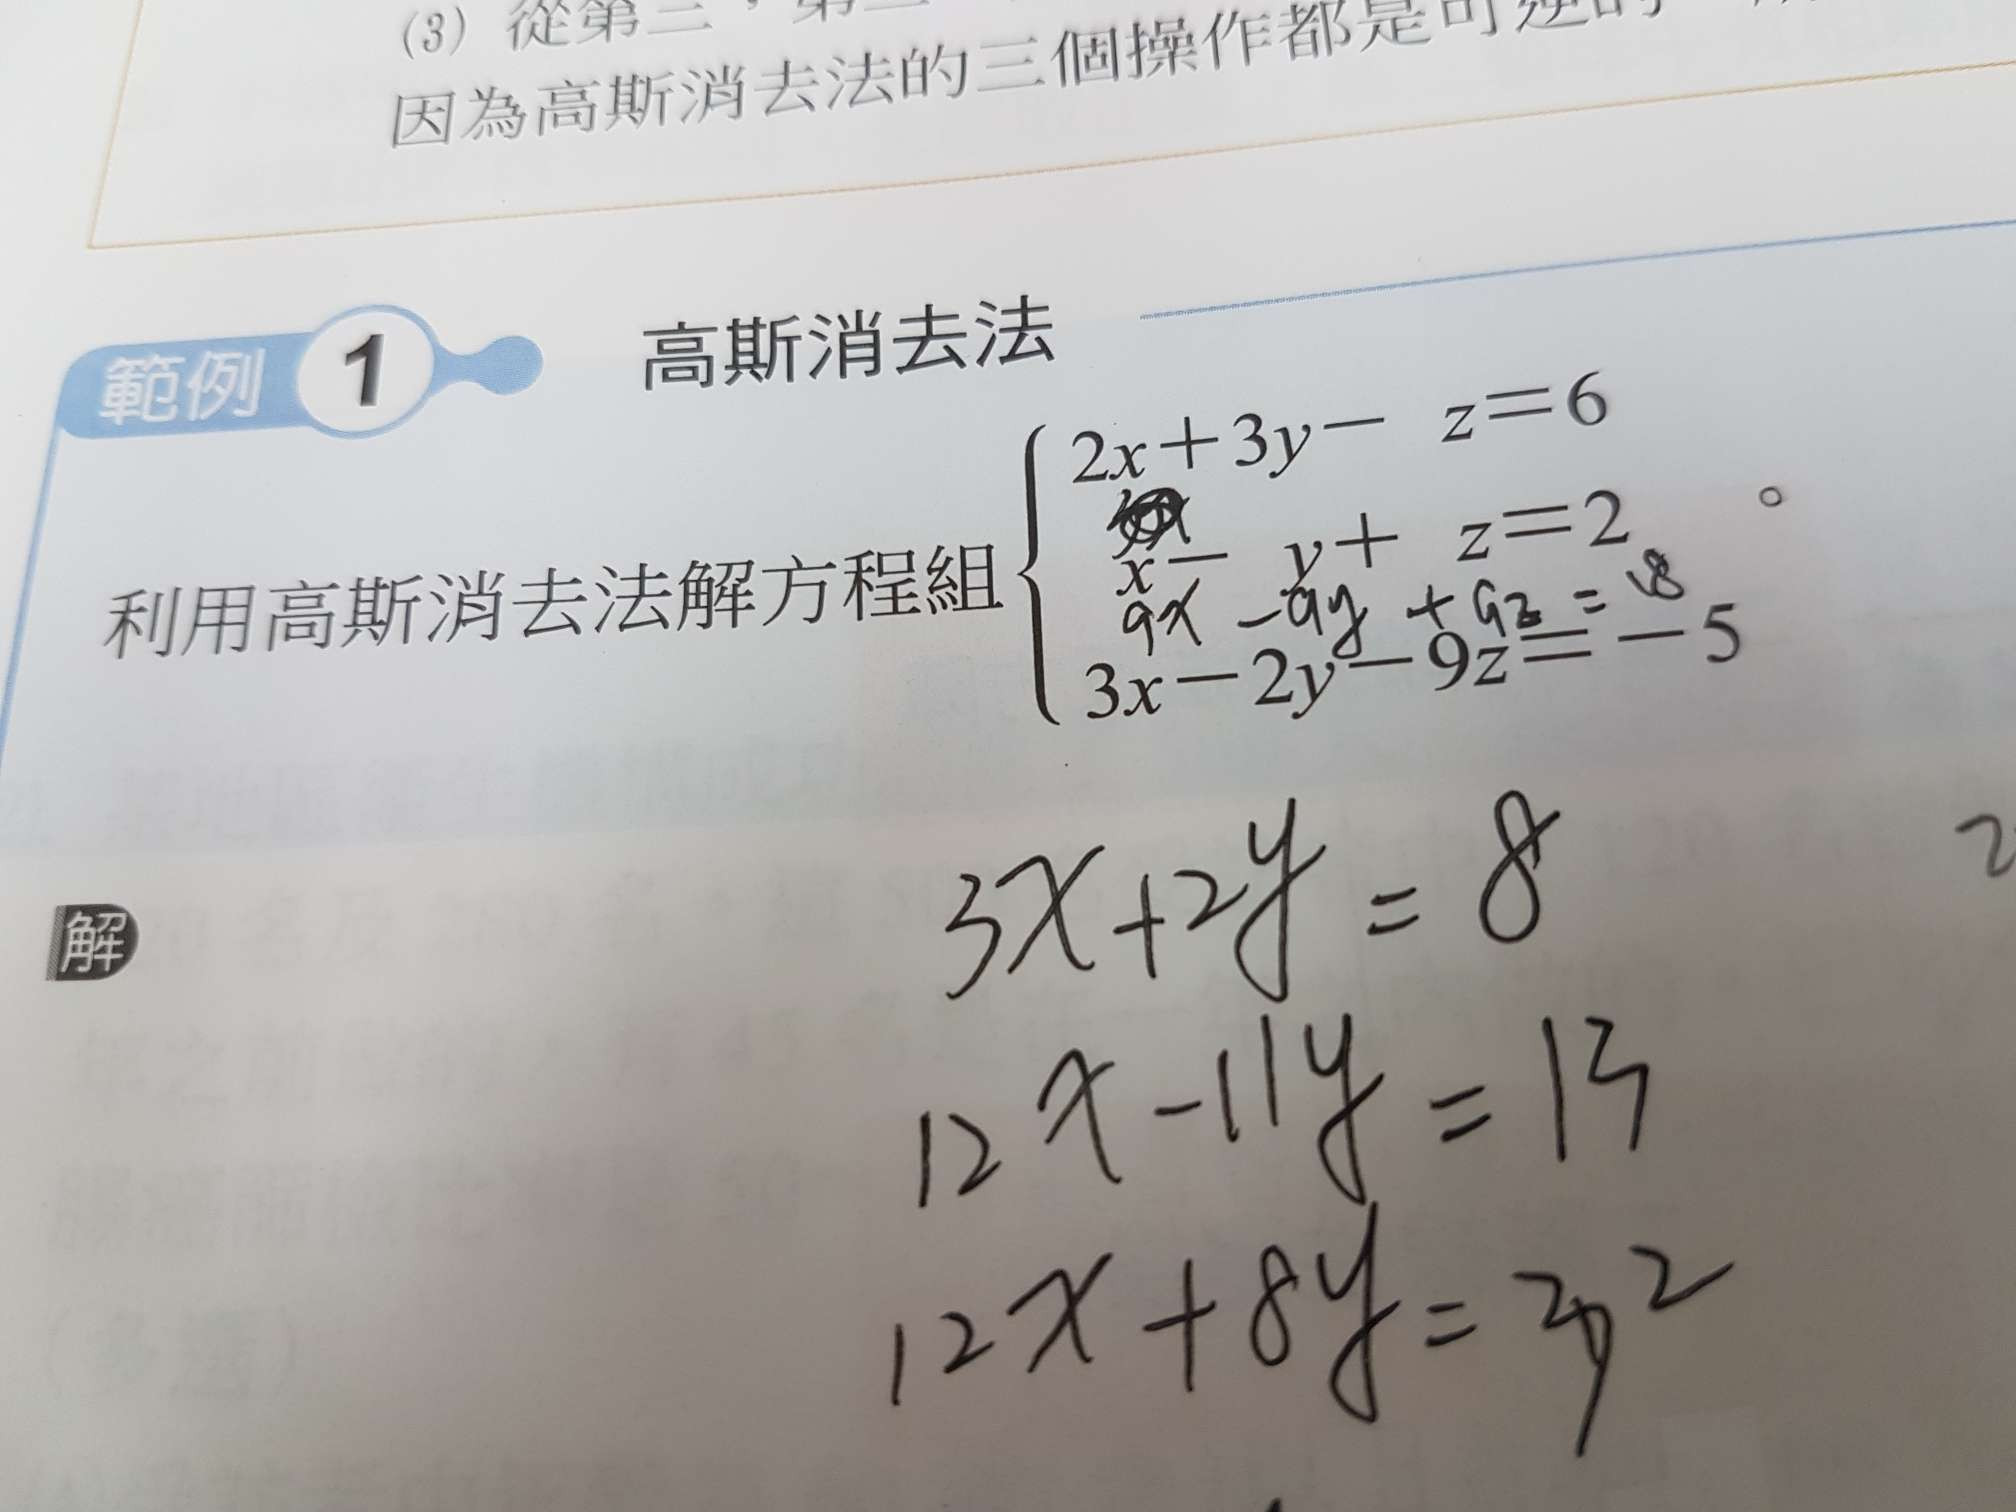 (3) 從第三，第二
因為高斯消去法的三個操作都是可逆的
範例 1 高斯消去法
利用高斯消去法解方程組
2x＋3y－ z＝6
x－ y＋ z＝2 。
9x -9y +9z = 18
3x－2y－9z＝－5
解
3x+2y = 8
12x-11y = 13
12x+8y = 32